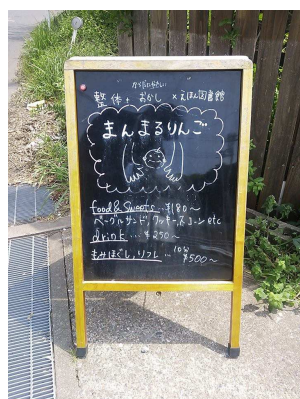 からだにやさしい
整体+おかし×えほん図書館
まんまるりんご
food & Sweets…¥180〜
ベーグルサンド, クッキー, スコーン etc
drink…¥250〜
もみほぐし, リフレ…10分 ¥500〜